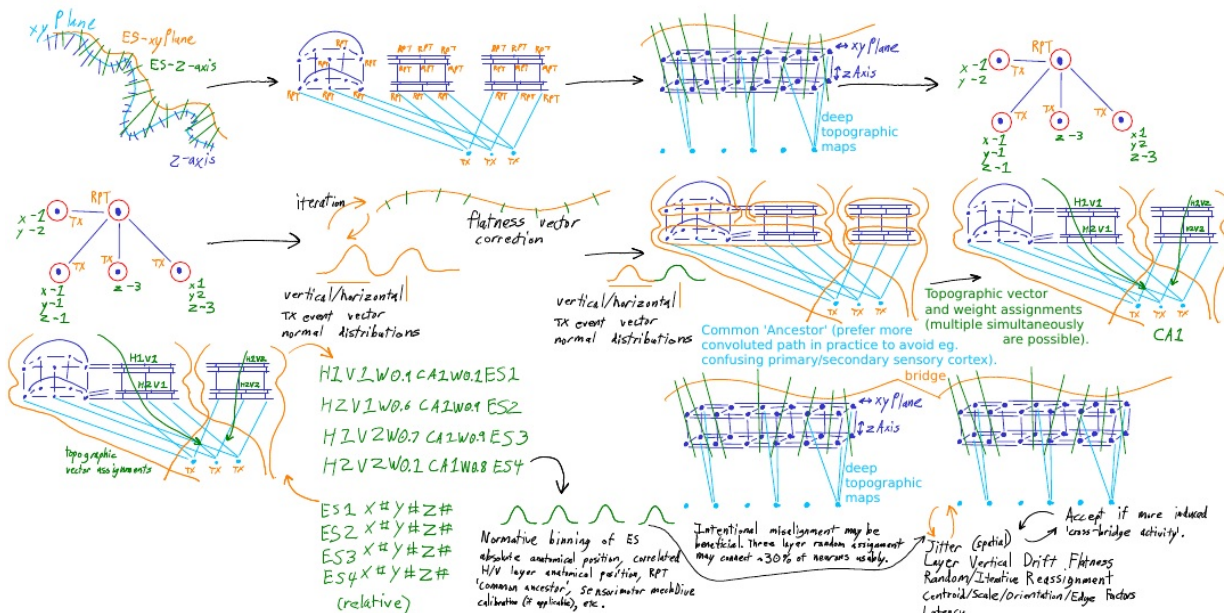 xy Plane
ES-xyPlane
ES-Z-axis
Z-axis
RPT
RPT RPT
RPT RPT RPT
RPT RPT RPT
RPT RPT RPT
RPT RPT RPT
RPT RPT RPT
RPT RPT RPT
RPT RPT RPT
TX TX TX
↔ xyPlane
↕ zAxis
deep
topographic
maps
RPT
x-1
y-2
TX
TX TX TX
x-1
y-1
z-1
z-3
x1
y2
z-3
RPT
x-1
y-2
TX
TX TX TX
x-1
y-1
z-1
z-3
x1
y2
z-3
iteration
flatness vector
correction
vertical/horizontal
TX event vector
normal distributions
vertical/horizontal
TX event vector
normal distributions
TX TX TX
Common 'Ancestor' (prefer more
convoluted path in practice to avoid eg.
confusing primary/secondary sensory cortex).
H1V1
H2V1
H1V2
H2V2
TX TX TX
CA1
Topographic vector
and weight assignments
(multiple simultaneously
are possible).
H1V1
H2V1
H1V2
H2V2
topographic
vector assignments
TX TX TX
H1V1W0.9CA1W0.1ES1
H2V1W0.6 CA1W0.9 ES2
H1V2W0.7 CA1W0.9 ES3
H2V2W0.1 CA1W0.8 ES4
ES1 X#Y#Z#
ES2 X#Y#Z#
ES3 X#Y#Z#
ES4 X#Y#Z#
(relative)
Normative binning of ES
absolute anatomical position, correlated
H/V layer anatomical position, RPT
'common ancestor', sensorimotor
calibration (if applicable), etc.
bridge
↔ xyPlane
↕ zAxis
deep
topographic
maps
Intentional misalignment may be
beneficial. Three layer random assignment
may connect ~30% of neurons usably.
Accept if more induced
'cross-bridge activity'.
Jitter (spatial)
Layer Vertical Drift Flatness
Random/Iterative Reassignment
Centroid/Scale/Orientation/Edge Factors
Latency